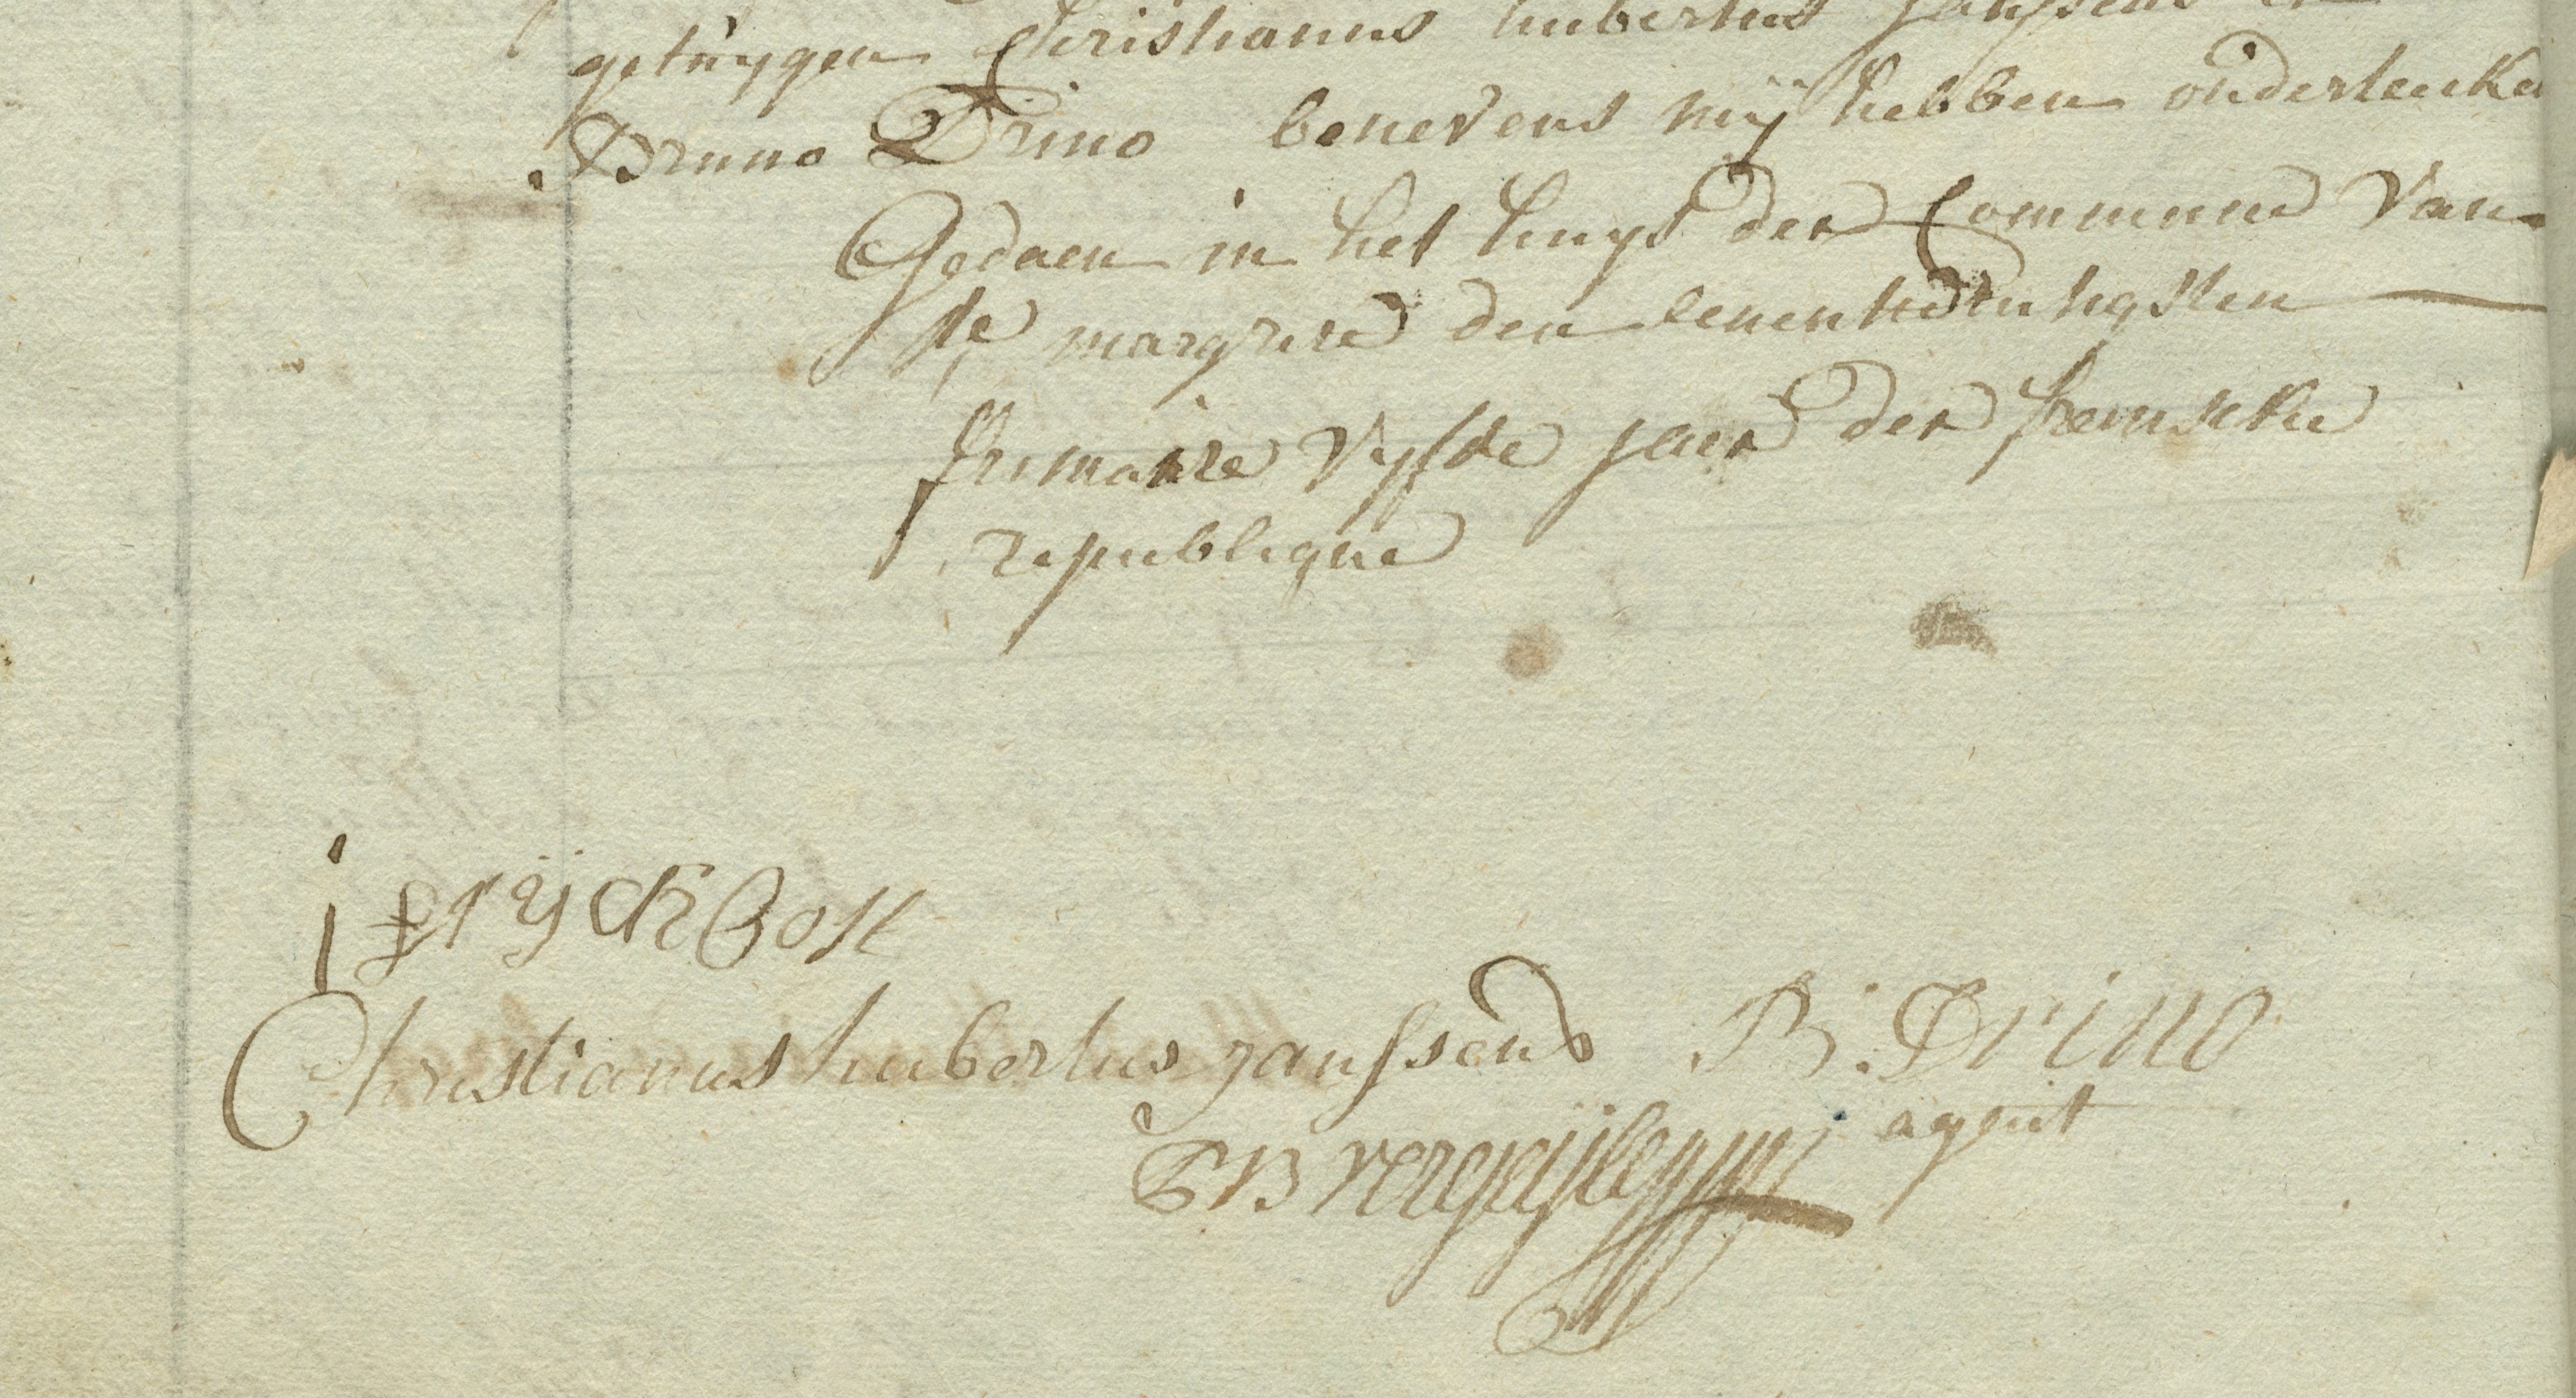 getuygen Christianus hubertus Janssens en
Bruno Drino benevens mij hebben onderteeken
Gedaen in het huys der Commune van
ste margriete den eenentwintigsten
frimaire vyfde jaer der fransche
republique
j f rijckbost
Christianus hubertus janssens B. Drino
PB agent